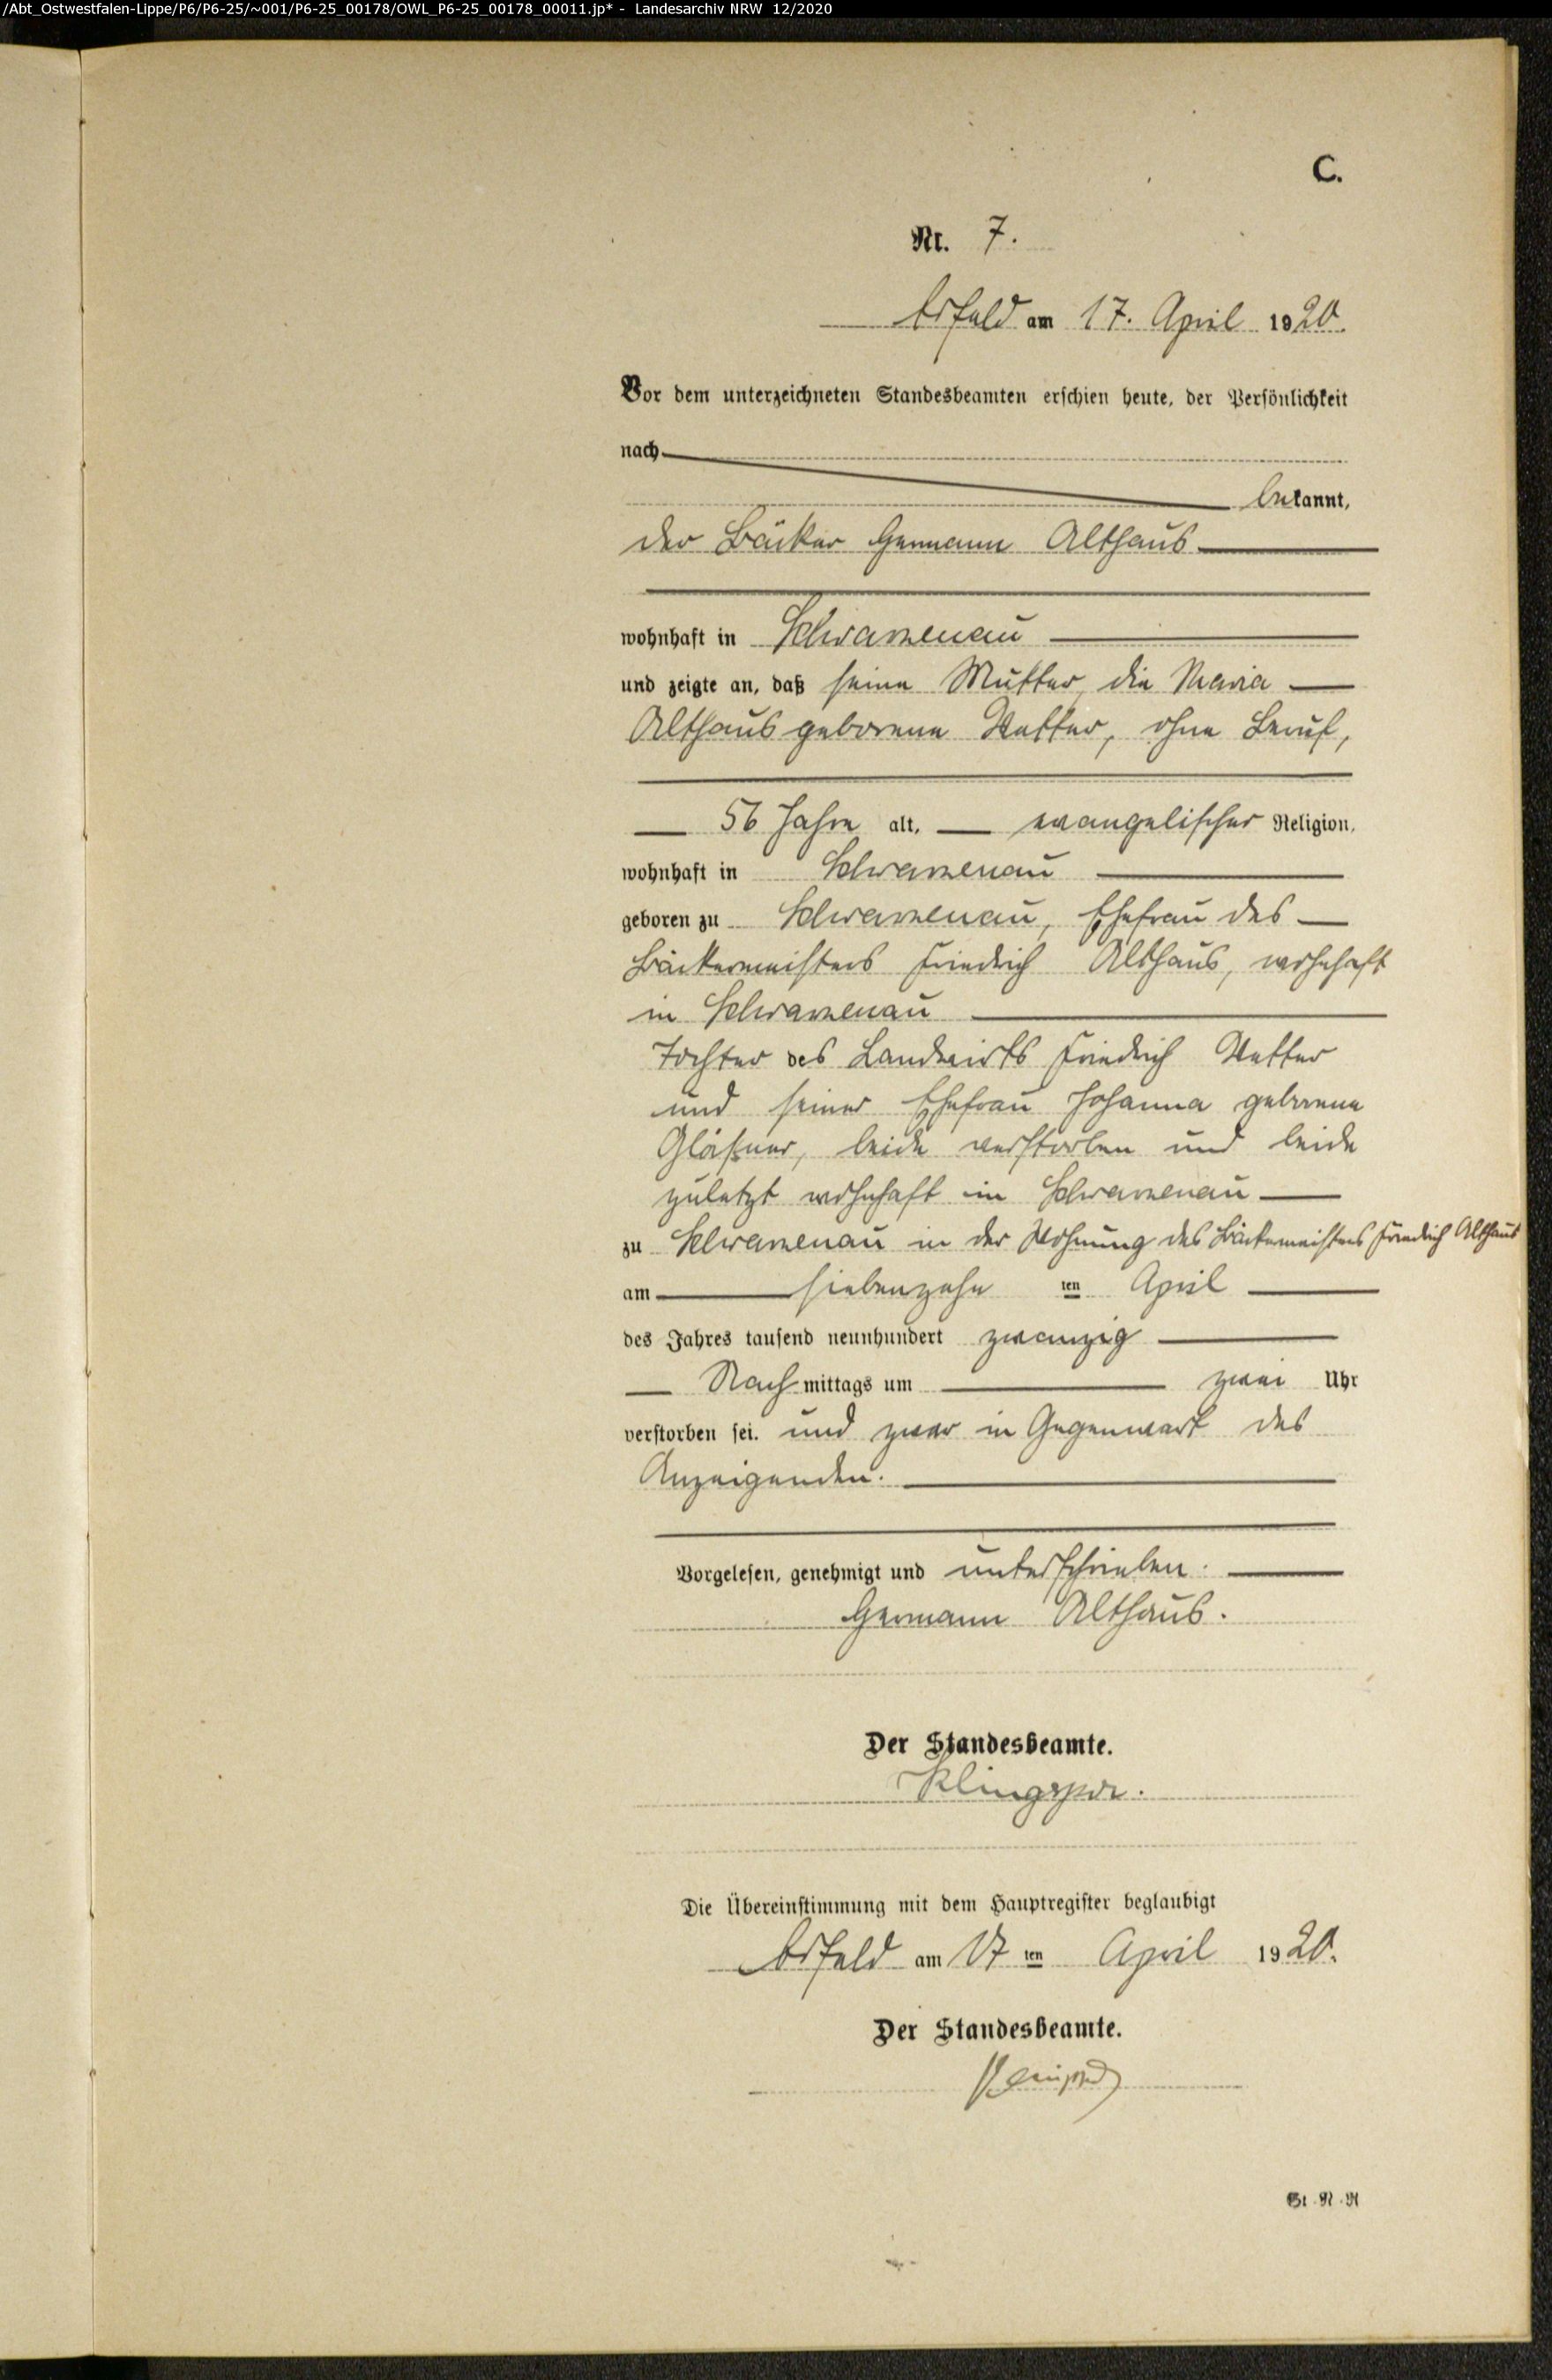 /Abt_Ostwestfalen-Lippe/P6/P6-25/~001/P6-25_00178/OWL_P6-25_00178_00011.jp* - Landesarchiv NRW 12/2020
C.
Nr. 7.
Arfeld am 17. April 1920.
Vor dem unterzeichneten Standesbeamten erschien heute, der Persönlichkeit
nach
bekannt,
der Bäcker Hermann Althaus
wohnhaft in Schwarzenau
und zeigte an, daß seine Mutter, die Maria
Althaus geborene Vetter, ohne Beruf,
56 Jahre alt, evangelischer Religion,
wohnhaft in Schwarzenau
geboren zu Schwarzenau, Ehefrau des
Bäckermeisters Friedrich Althaus, wohnhaft
in Schwarzenau
Tochter des Landwirts Friedrich Vetter
und seiner Ehefrau Johanna geborene
Gläßner, beide verstorben und beide
zuletzt wohnhaft in Schwarzenau
zu Schwarzenau in der Wohnung des Bäckermeisters Friedrich Althaus
am siebenzehn ten April
des Jahres tausend neunhundert zwanzig
Nach mittags um zwei Uhr
verstorben sei. und zwar in Gegenwart des
Anzeigenden.
Vorgelesen, genehmigt und unterschrieben.
Hermann Althaus.
Der Standesbeamte.
Klingspor.
Die Übereinstimmung mit dem Hauptregister beglaubigt
Arfeld am 17 ten April 1920.
Der Standesbeamte.